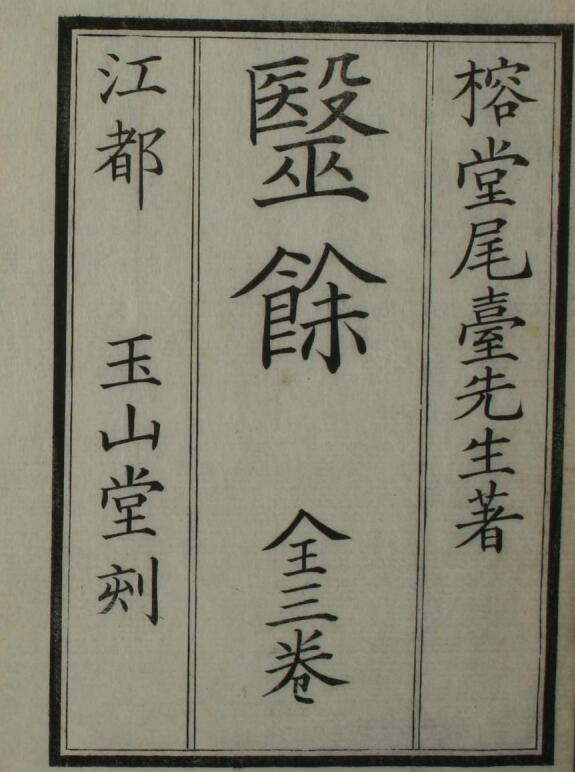 榕堂尾臺先生著
毉餘 全三卷
江都 玉山堂刻